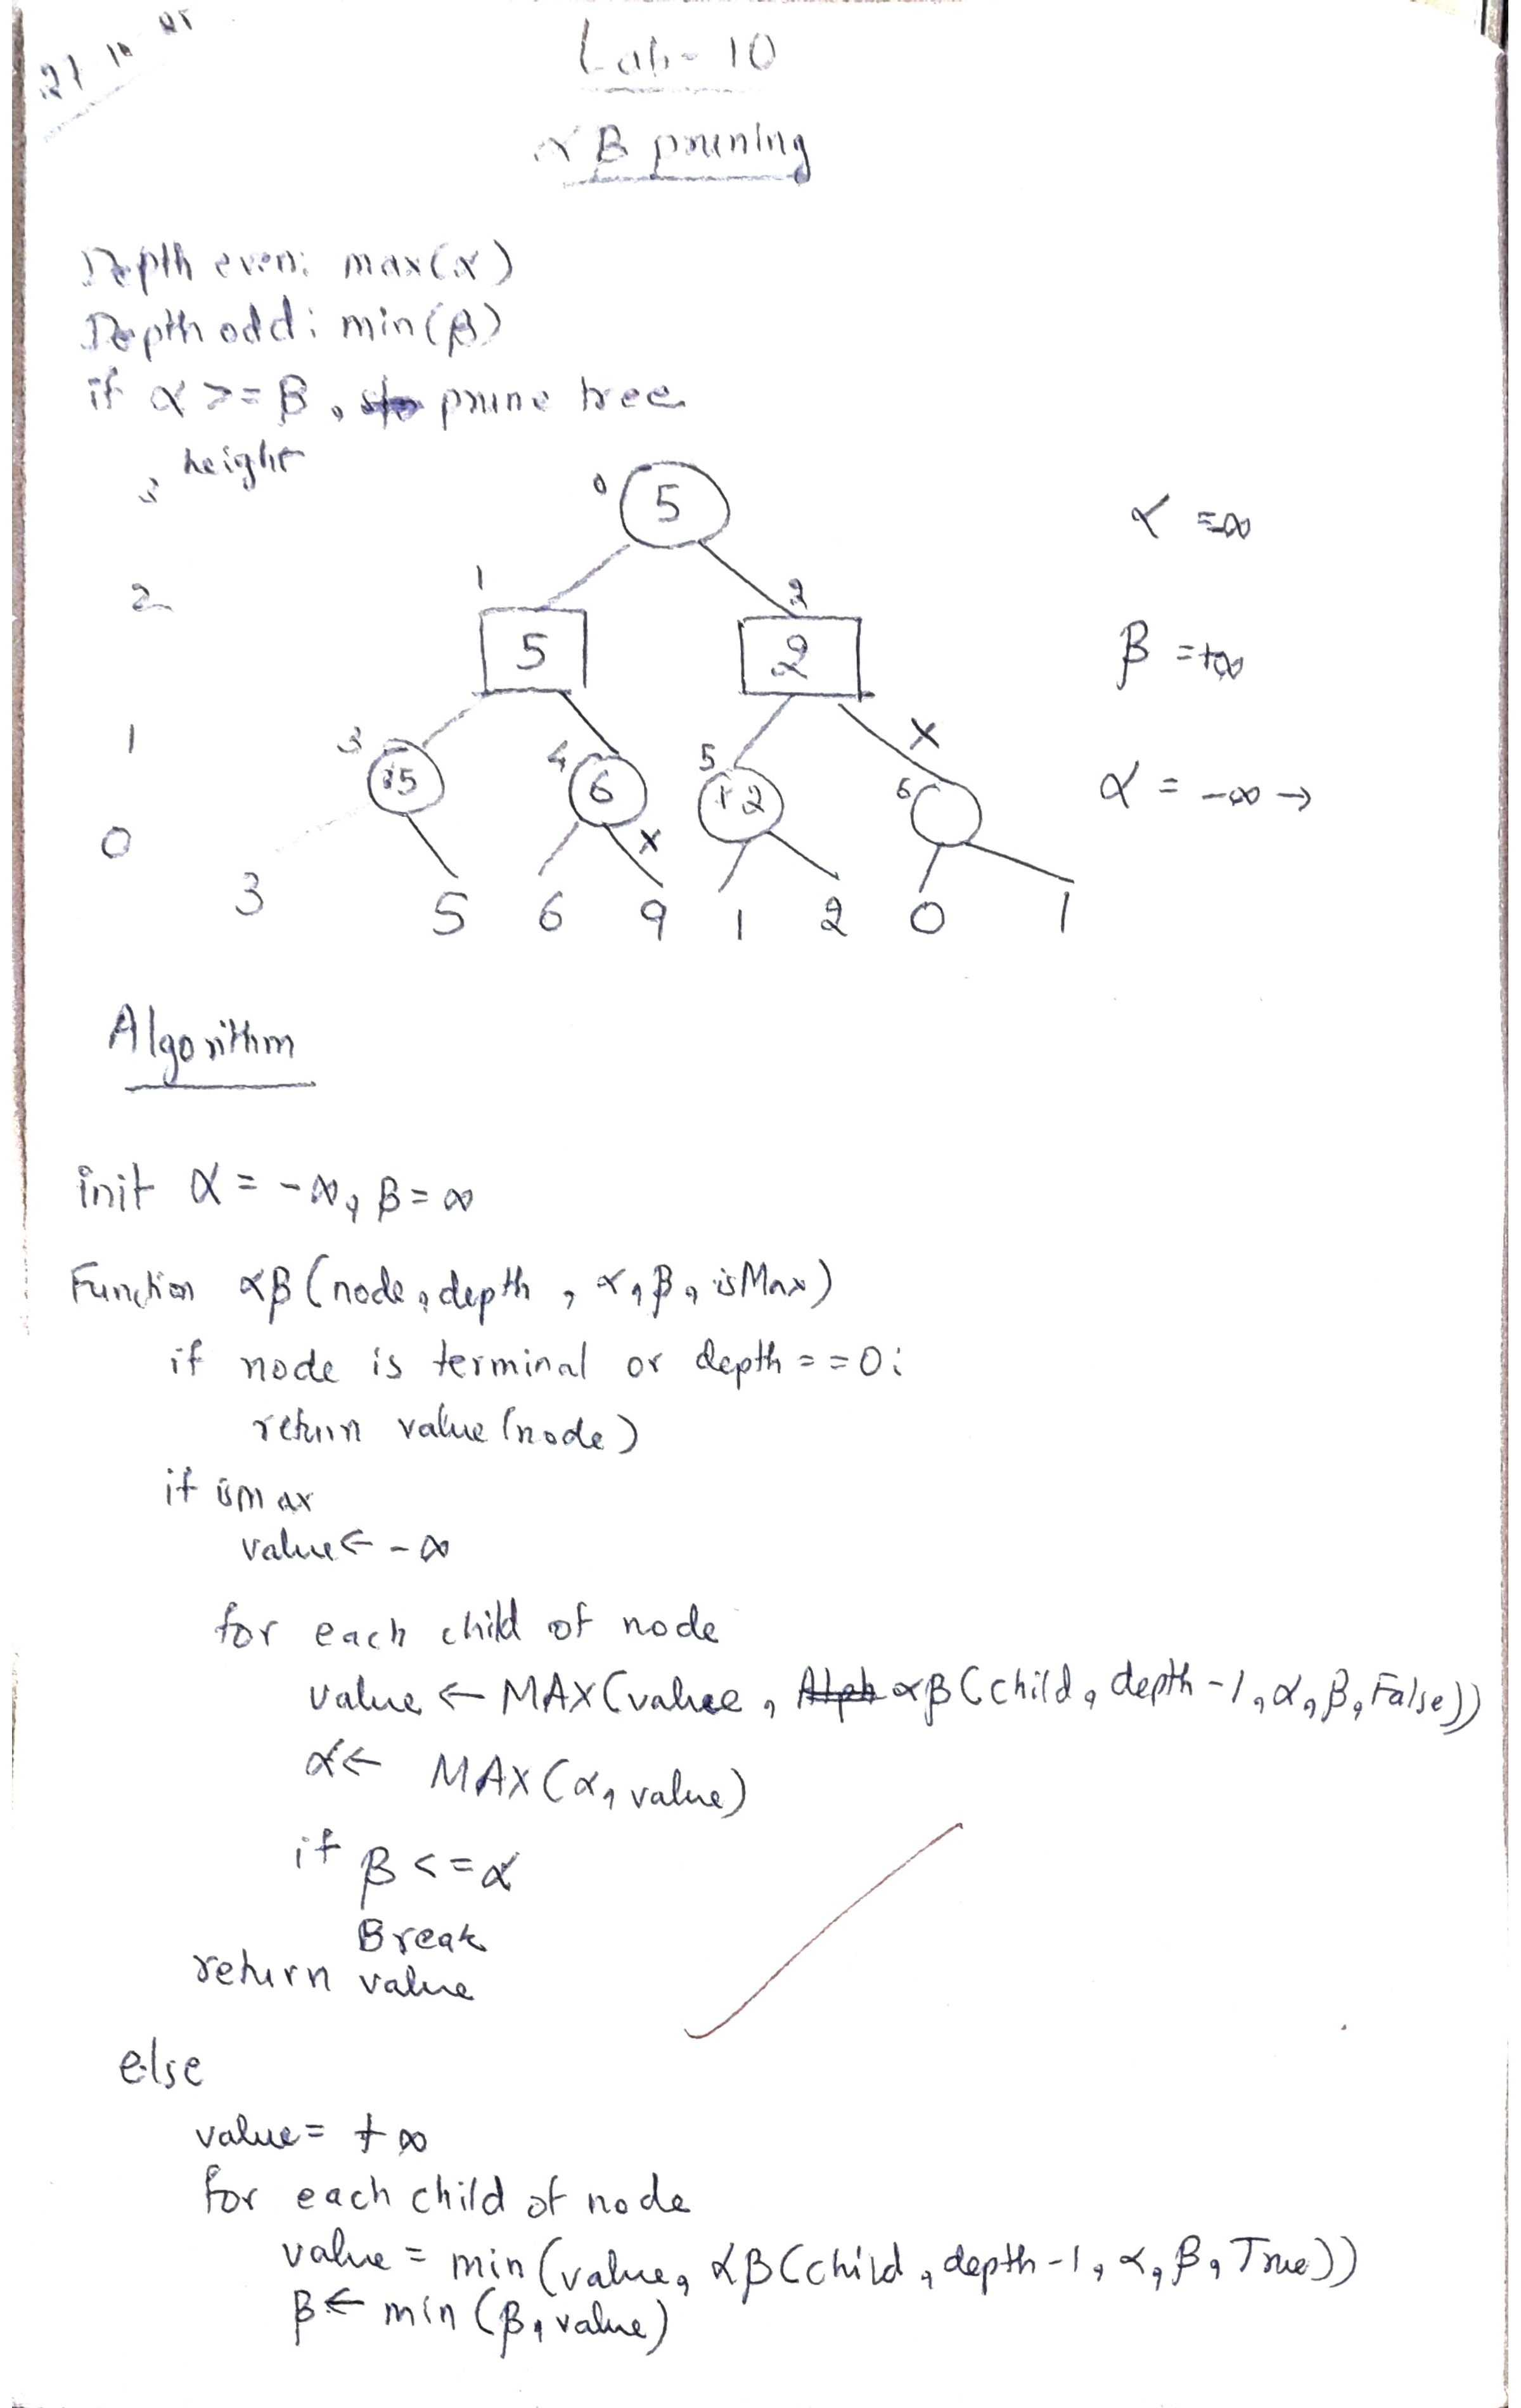 27 10 25
Lab - 10
αβ pruning
Depth even: max(α)
Depth odd: min(β)
if α >= β, prune tree
height
3
0 5
α = -∞
2
1 2
5 2
β = +∞
1
3 4 5 6
5 6 2
X X
α = -∞ →
0
3 5 6 9 1 2 0 1
Algorithm
init α = -∞, β = ∞
Function αβ (node, depth, α, β, isMax)
if node is terminal or depth == 0:
return value (node)
if ismax
value ← -∞
for each child of node
value ← MAX(value, αβ(child, depth -1, α, β, False))
α ← MAX(α, value)
if β <= α
Break
return value
else
value = +∞
for each child of node
value = min(value, αβ(child, depth -1, α, β, True))
β ← min (β, value)